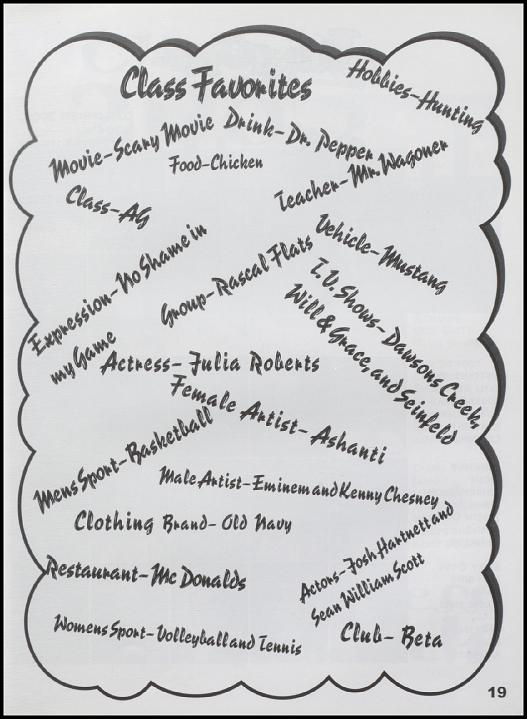 Class Favorites
Hobbies-Hunting
Movie-Scary Movie
Drink-Dr. Pepper
Food-Chicken
Teacher-Mr. Wagoner
Class-AG
Vehicle-Mustang
Expression-No Shame in
my Game
Group-Rascal Flats
T.V. Shows-Dawsons Creek,
Will & Grace, and Seinfeld
Actress-Julia Roberts
Female Artist-Ashanti
Mens Sport-Basketball
Male Artist-Eminem and Kenny Chesney
Clothing Brand-Old Navy
Actors-Josh Hartnett and
Sean William Scott
Restaurant-McDonalds
Womens Sport-Volleyball and Tennis
Club-Beta
19